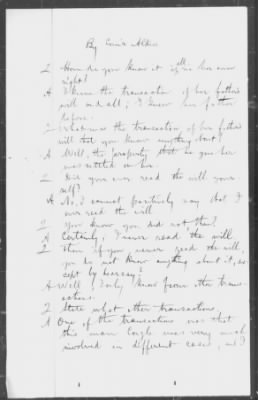 By Com'r Alden
Q How do you know it all is her own
right?
A I know the transaction of her father's
will and all; I knew her father
before.
Q What was the transaction of her father's
will that you know anything about?
A Well, the property that he gave her
was settled on her
Q Did you ever read the will your-
self?
A No, I cannot positively say that I
ever read the will
Q You know you did not then?
A Certainly, I never read the will
Q Then if you never read the will,
you do not know anything about it, ex-
cept by hearsay?
A Well I only know from other trans-
actions.
Q State what other transactions
A One of the transactions was that
this man Cogle was very much
involved in different cases, and I